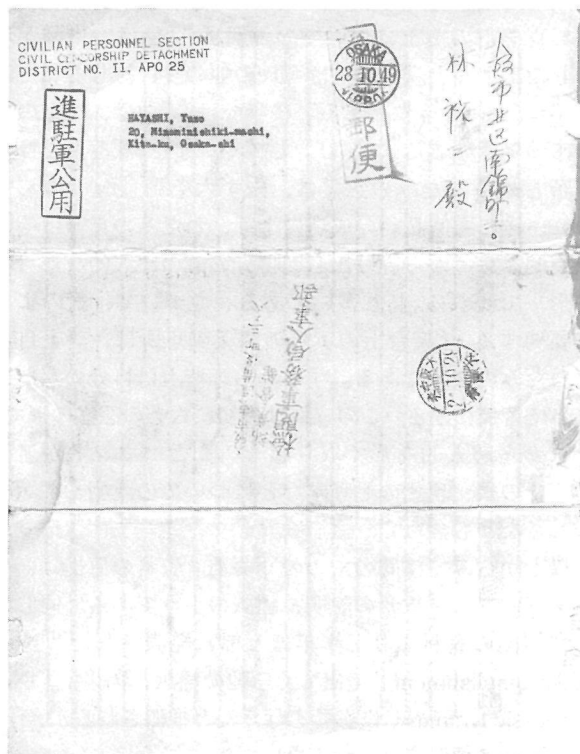 CIVILIAN PERSONNEL SECTION
CIVIL CENSORSHIP DETACHMENT
DISTRICT NO. II, APO 25
進駐軍公用
HAYASHI, Yuzo
20, Minaminishiki-machi,
Kita-ku, Osaka-shi
OSAKA
28 10 49
NIPPON
郵便
大阪市北区南錦町二〇
林 殿
検閲事務局人事部